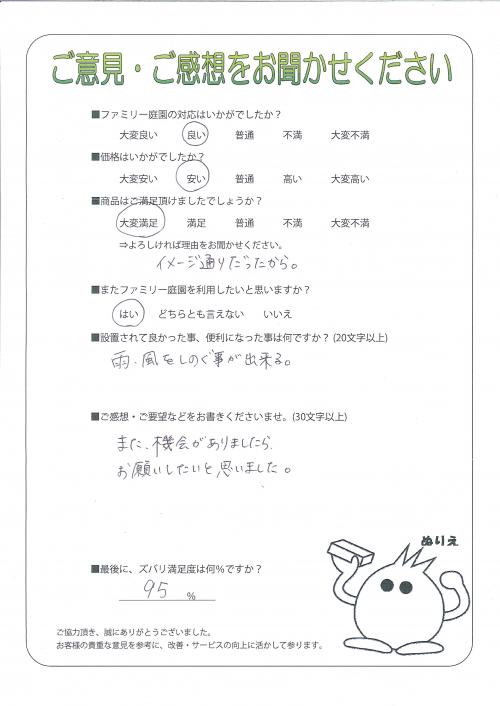 ご意見・ご感想をお聞かせください
■ファミリー庭園の対応はいかがでしたか？
大変良い 良い 普通 不満 大変不満
■価格はいかがでしたか？
大変安い 安い 普通 高い 大変高い
■商品はご満足頂けましたでしょうか？
大変満足 満足 普通 不満 大変不満
⇒よろしければ理由をお聞かせください。
イメージ通りだったから。
■またファミリー庭園を利用したいと思いますか？
はい どちらとも言えない いいえ
■設置されて良かった事、便利になった事は何ですか？(20文字以上)
雨、風をしのぐ事が出来る。
■ご感想・ご要望などをお書きくださいませ。(30文字以上)
また、機会がありましたら、
お願いしたいと思いました。
ぬりえ
■最後に、ズバリ満足度は何％ですか？
95 ％
ご協力頂き、誠にありがとうございました。
お客様の貴重な意見を参考に、改善・サービスの向上に活かして参ります。